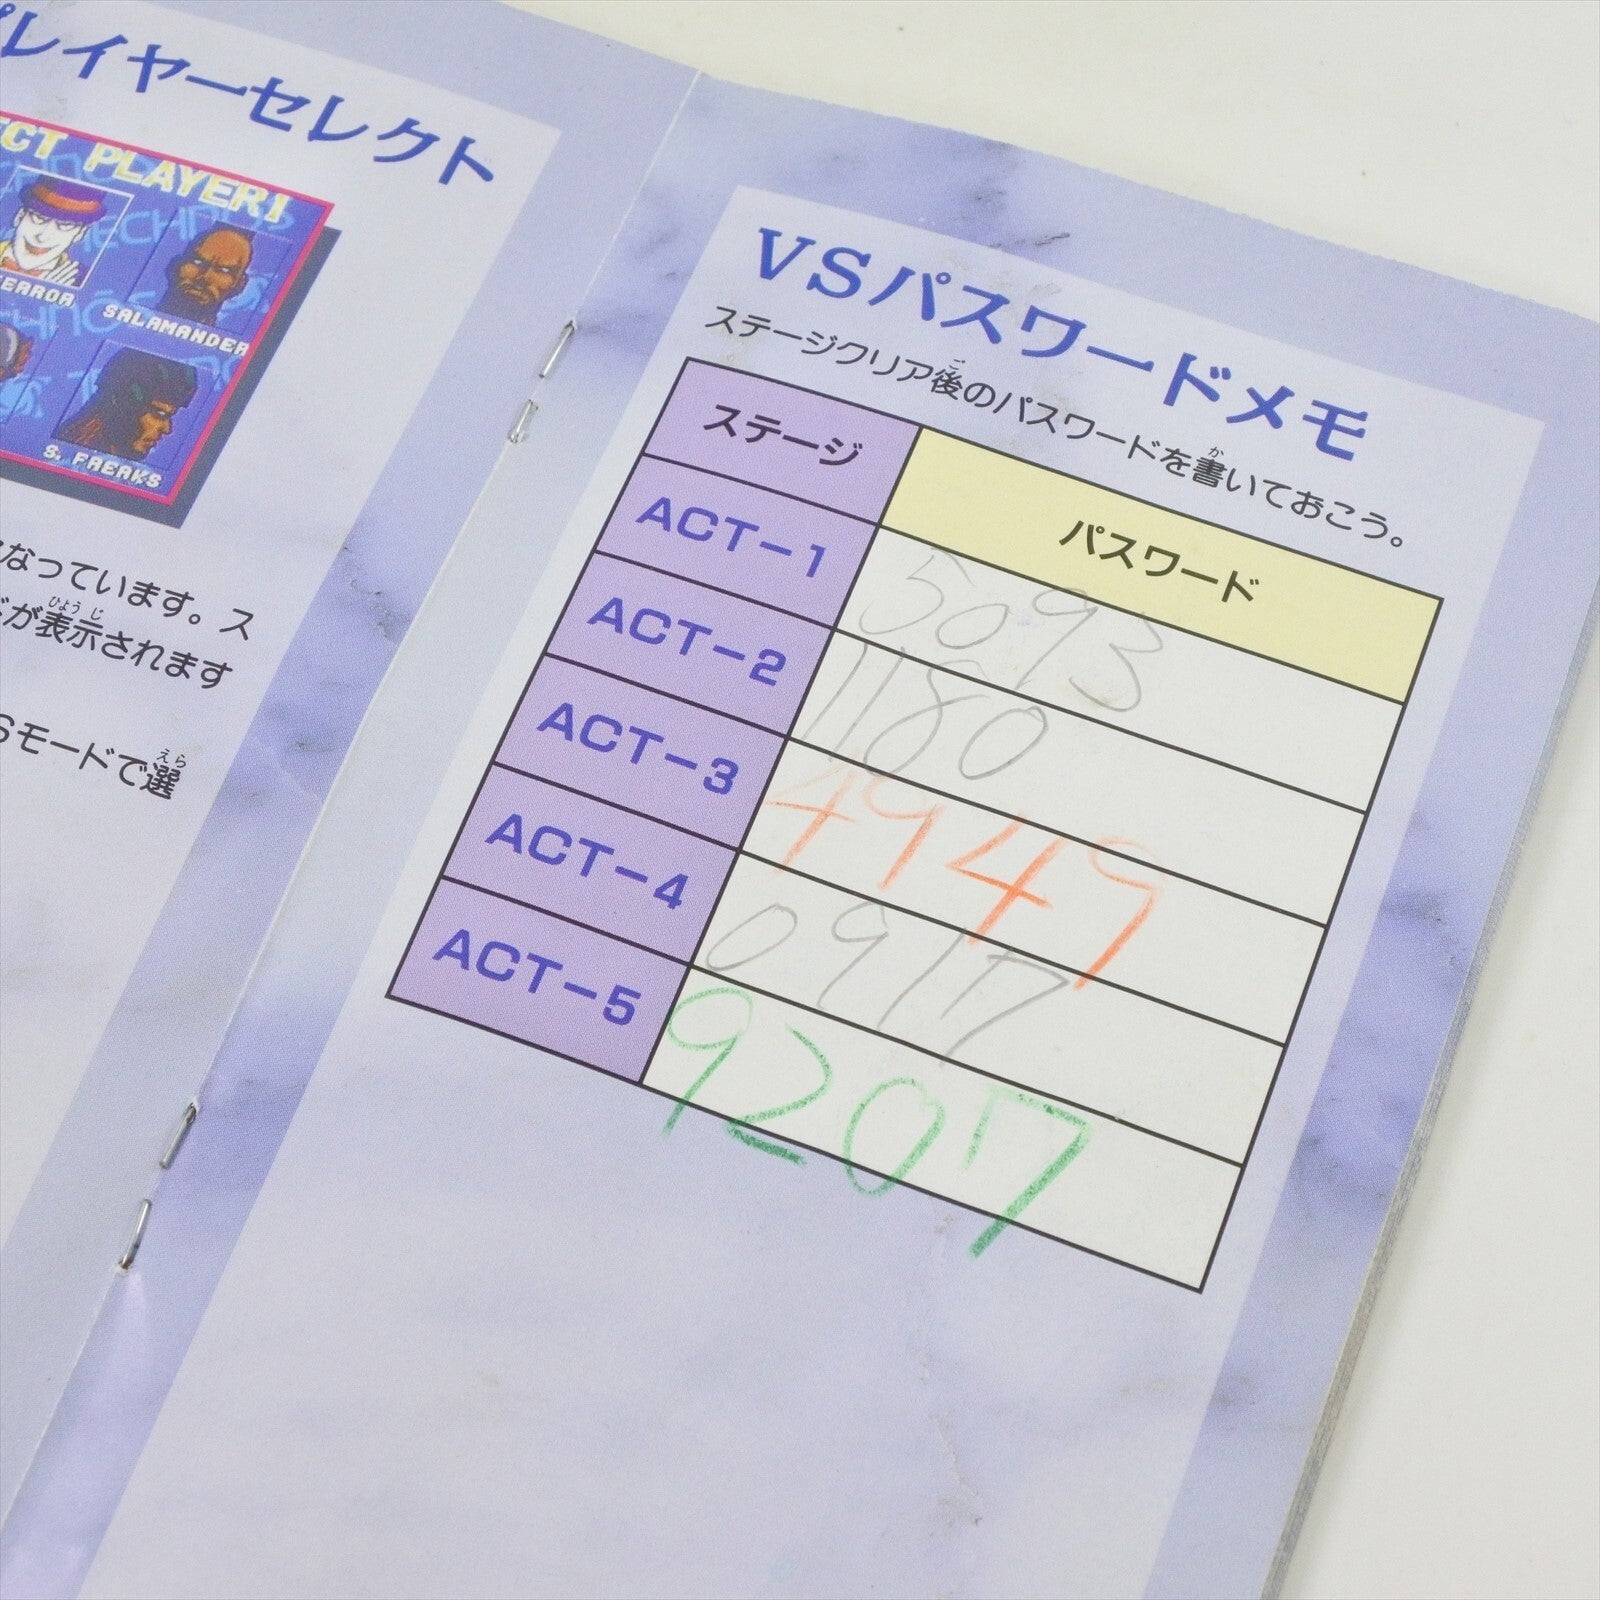 プレイヤーセレクト
ECT PLAYER!
ERROR
SALAMANDER
S. FREAKS
なっています。ス
が表示されます
Sモードで選
VSパスワードメモ
ステージクリア後のパスワードを書いておこう。
ステージ パスワード
ACT-1 5093
ACT-2 1180
ACT-3 4949
ACT-4 0917
ACT-5 9207